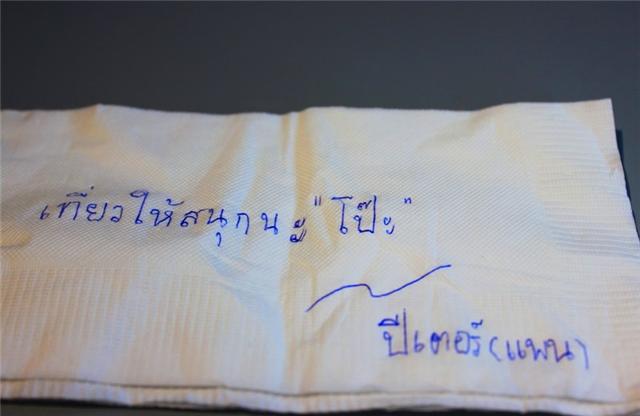 เที่ยวให้สนุกนะ "โป๊ะ"
ปีเตอร์ (แพน)